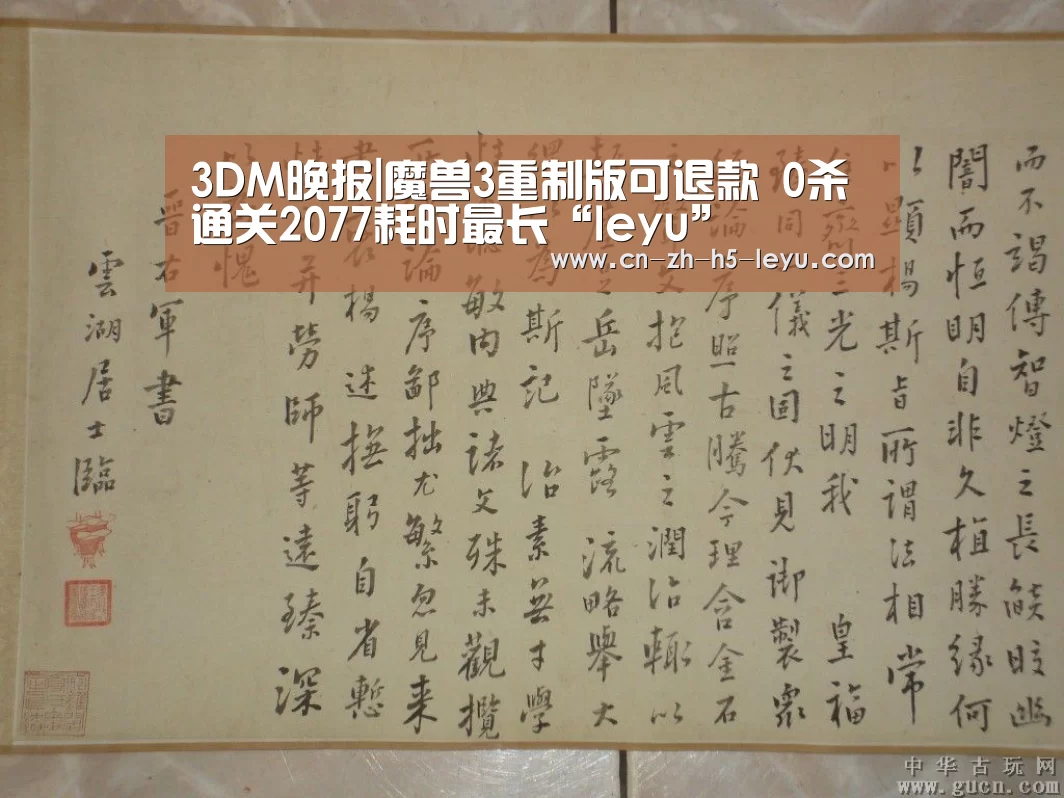 3DM晚报|魔兽3重制版可退款 0杀
通关2077耗时最长“leyu”
www.cn-zh-h5-leyu.com
而不竭傳智燈之長燄皎幽
闇而恒明自非久植勝緣何
以顯揚斯旨所謂法相常
三光之明我 皇福
臻同儀之固伏見御製衆
論序照古騰今理含金石
之文抱風雲之潤治輒以
塵之岳墜露 流略舉大
為斯記 治素無才學
聰敏内典諸文殊未觀攬
所論序鄙拙尤繁忽見来
書揚 述撫躬自省慙
并勞師等遠臻深
愧
晋右軍書
雲湖居士臨
中华古玩网
www.gucn.com